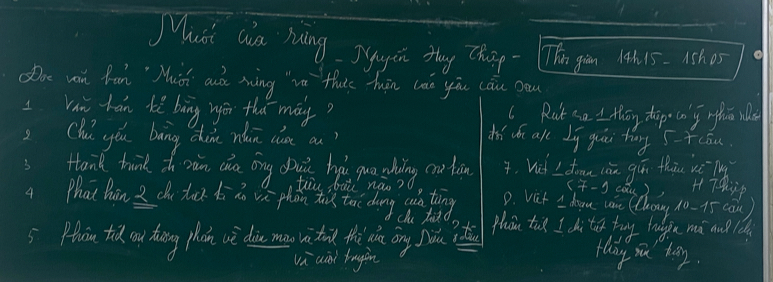 Muối của rừng
- Nguyễn Huy Thiệp -
Thời gian 14h15 - 15h05
Đọc văn bản "Muối của rừng" và thực hiện các yêu cầu sau
1 Văn bản kể bằng ngôi thứ mấy?
2 Chủ yếu bằng điểm nhìn của ai?
3 Hành trình đi săn của ông Diểu trải qua những sự kiện
tiêu biểu nào?
4 Phát hiện 2 chi tiết kì ảo và phân tích tác dụng của từng
chi tiết
5. Phân tích sự tương phản về diện mạo và tính thế của ông Diểu ở đầu
và cuối truyện
6 Rút ra 1 thông điệp có ý nghĩa nhất
đối với a/c Lý giải trong 5-7 câu.
7. Viết 1 đoạn văn giới thiệu về Ng
H Thiệp
(7-9 câu)
8. Viết 1 đoạn văn (khoảng 10-15 câu)
Phân tích 1 chi tiết trong truyện mà anh/chị
thấy